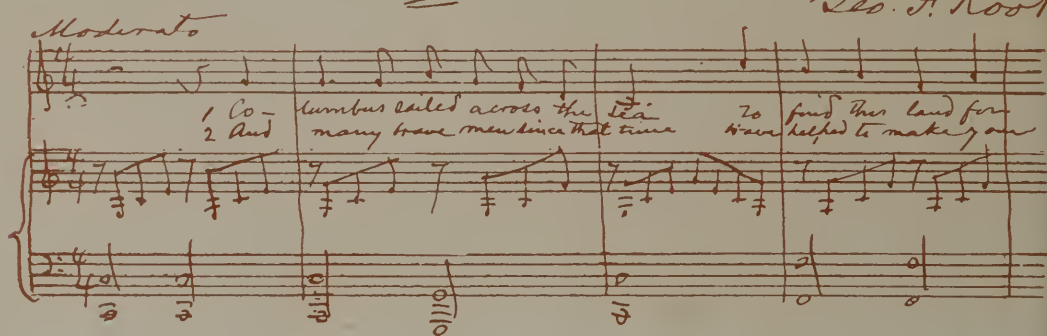 Moderato
Geo. F. Root
1 Co- lumbus sailed across the sea To find this land for
2 And many brave men since that time Have helped to make your